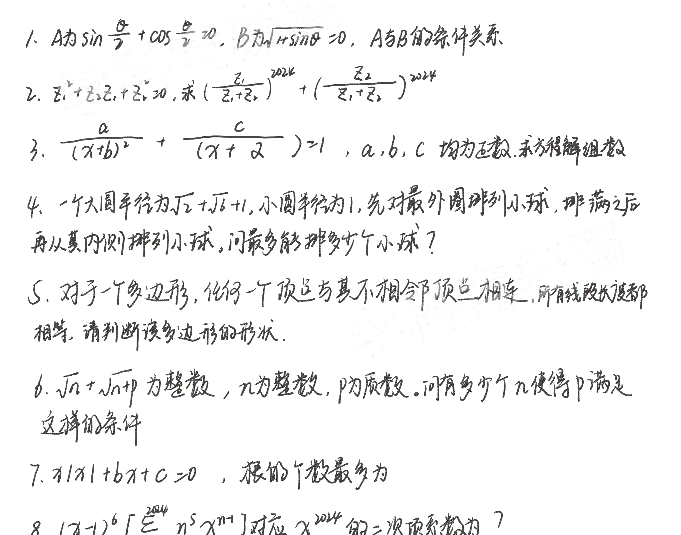 1. A为 sin θ/2 + cos θ/2 = 0, B为√1+sinθ = 0, A与B的条件关系
2. z₁²+z₂z₁+z₂²=0, 求 (z₁/(z₁+z₂))^2024 + (z₂/(z₁+z₂))^2024
3. a/(x+b)² + c/(x+2) )=1 , a, b, c 均为正数. 求方程解组数
4. 一个大圆半径为√2+√6+1, 小圆半径为1, 先对最外圈排列小球, 排满之后
再从其内侧排列小球。问最多能排多少个小球?
5. 对于一个多边形, 任何一个顶点与其不相邻顶点相连, 所有线段长度都
相等, 请判断该多边形的形状.
6. √n+√n+p 为整数, n为整数, p为质数。问有多少个n使得p满足
这样的条件
7. x|x|+bx+c=0 , 根的个数最多为
8. (x-1)⁶[Σ^2024 n⁵xⁿ⁻¹]对应 x^2024 的二次项系数为?